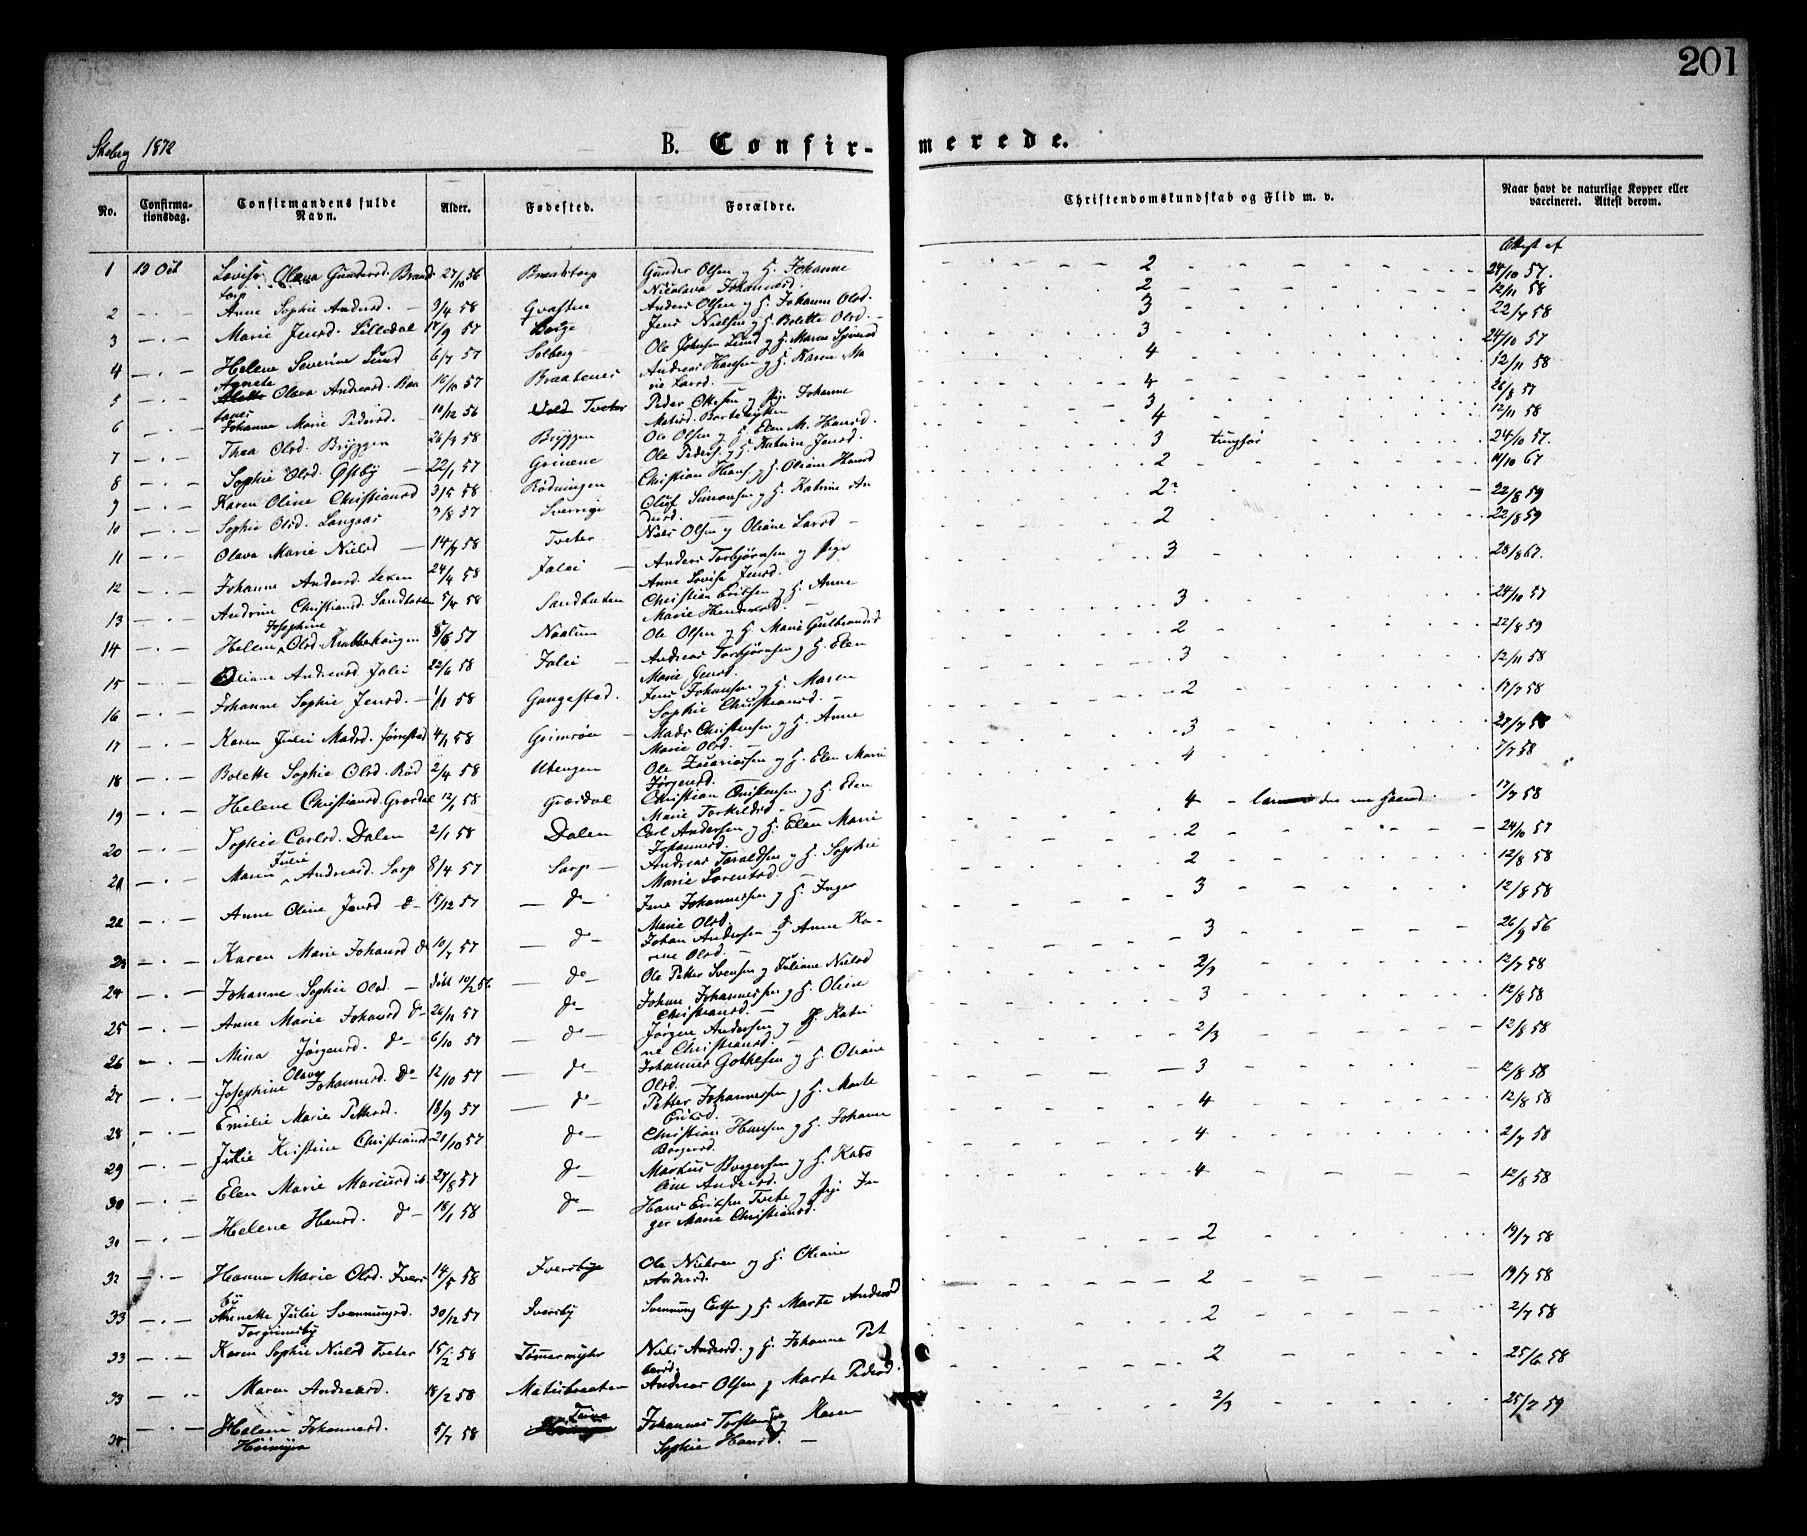 201
Skeberg 1872
B. Confir-merede.
No. Confirma-tionsdag. Confirmandens fulde Navn. Alder. Fødested. Forældre. Christendomskundskab og Flid m. v. Naar havt de naturlige Kopper eller vaccineret. Attest derom.
Attest af
1 13 Oct Lovise Olava Gundersd. Brands 27/10 56 Gunder Olsen og H. Johanne 2 24/10 57.
torp Nicolava Johannesd.
2 Anne Sophie Andersd. 3/4 58 Anders Olsen og H. Johanne Olsd. 2 12/11 58
3 Marie Jensd. Lilledal 17/9 57 Borge Jens Nielsen og H. Bolette Olsd. 3 22/7 58
4 Helene Severine Lund 6/7 57 Solberg Ole Johnsen Lund og H. Maren 3 24/10 57
Agnete Andreas Hansen og H. Karen Ma
5 Olava Andersd. Braa 16/10 57 Braatenes rie Larsd. 4 12/11 58
tenes
6 Johanne Marie Pedersd. 10/12 56 Tveter Peder Olsen og Johanne 4 26/8 57
7 Thea Olsd. Bryggen 26/7 58 Bryggen Ole Olsen og H. Elen M. Hansd. 3 12/11 58
8 Sophie Olsd. Østby 22/1 57 Grinene Ole Peders. og H. Katrine Jensd. 4 24/10 57.
9 Karen Oline Christiansd 3/5 58 Rødningen Christian Hans og H. Oliane Hansd 3 tungfør
10 Sophie Olsd. Langaas 7/8 57 Sverrige Oluf Simonsen og H. Katrine An 2 22/8 59
dersd.
11 Olava Marie Nielsd 14/7 58 Tveter Niels Olsen og Oliane Larsd 2 22/8 59
12 Johanne Andersd. Lexen 24/4 58 Jalei Anders Torbjørnsen og Pige 3 28/8 67.
Anne Lovise Jensd.
13 Andrine Christiansd. Sandbakken 5/4 58 Sandbakken Christian Eriksen og H. Anne 3 24/10 57
Josephine
14 Helene Olsd. Krabbekaugen 5/6 57 Naalum Ole Olsen og H. Marie Gulbrandsd 2 22/8 59
15 Oliane Andreasd Jalei 22/6 58 Jalei Andreas Torbjørnsen og H. Elen 3 12/11 58
Marie Jensd.
16 Johanne Sophie Jensd. 1/11 58 Gangestad. Jens Johansen og H. Maren 2 17/7 58
Sophie Christiansd.
17 Karen Julie Madsd. 4/1 58 Grimsrøn Mads Christensen og H. Anne 3 27/7 58
Marie Olsd.
18 Bolette Sophie Olsd. Rød 2/4 58 Utengen Ole Zacariassen og H. Elen Marie 4 7/7 58
Jørgensd.
19 Helene Christiansd. Grordal 12/1 58 Grordal Christian Christensen og H. Elen 4 17/7 58
Marie Torkildsd
20 Sophie Carlsd. Dalen 2/1 58 Dalen Carl Andersen og H. Elen Marie 2 24/10 57
Johannesd.
Julie
21 Maren Andreasd. Sarp 8/4 57 Sarp Andreas Taraldsen og H. Sophie 2 12/8 58
Marie Lorentsd.
22 Anne Oline Jensd do 15/12 57 do Jens Johannessen og H. Inger 3 12/8 58
Marie Olsd.
23 Karen Marie Johansd do 10/7 57 do Johan Andersen og Anne Ka- 3 26/9 56
rene Olsd.
24 Johanne Sophie Olsd. døbt 10/2 56 do Ole Petter Svensen og Juliane Nielsd 2/3 12/7 58
25 Anne Marie Johansd do 26/11 57 do Johan Johannessen og H. Oline 3 12/8 58
Christiansd.
26 Mina Jørgensd. do 6/10 57 do Jørgen Andersen og H. Katri 2/3 12/8 58
ne Christiansd.
Olava
27 Josephine Johannesd. do 12/10 57 do Johannes Gothesen og H. Oliane 3 12/8 58
Olsd.
28 Emilie Marie Pettersd. 18/9 57 do Petter Johannessen og H. Marte 4 12/8 58
Eriksd.
29 Julie Kristine Christiansd 28/10 57 do Christian Hansen og H. Johanne 4 2/7 58
Borgersd.
30 Elen Marie Marcusd ib. 27/8 57 do Markus Borgersen og H. Karo 4 12/8 58
line Andersd.
31 Helene Hansd. do 18/1 58 do Hans Eriksen Tvete og Pige In 2 19/7 58
ger Marie Christiansd.
32 Hanna Marie Olsd. Ivers 14/5 58 Iversbye Ole Nielsen og H. Oliane 2 19/7 58
by Andersd.
33 Anneke Julie Svenningsd. 30/12 57 Iversby Svenning Carlsen og H. Marte Andersd 2 2/7 58
Torgrimsby
33 Karen Sophie Nielsd Tveter 15/2 58 Tømmermyhr Niels Andersd. og H. Johanne Pet 2 25/6 58
tersd.
33 Maren Andreasd. 18/2 58 Matisbraaten Andreas Olsen og Marte Pedersd. 2/3 25/7 59
34 Helene Johannesd. 5/7 58 Tune Johannes Torstensen og Karen
Høimyra Sophie Hansd.